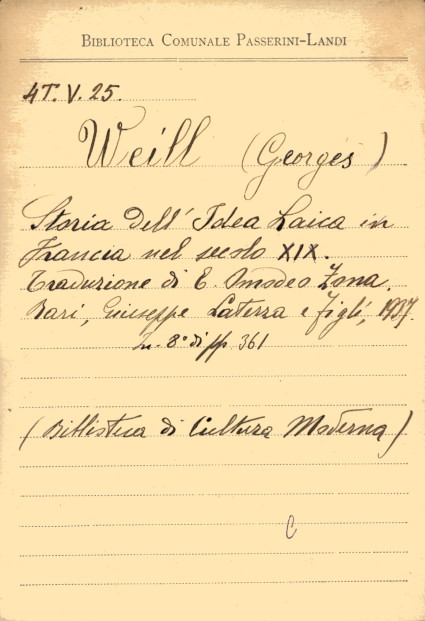 BIBLIOTECA COMUNALE PASSERINI-LANDI
4T. V. 25.
Weill (Georges)
Storia dell' Idea Laica in
Francia nel secolo XIX.
Traduzione di E. Omodeo Zona.
Bari, Giuseppe Laterza e figli, 1937.
In-8° di pp 361
(Biblioteca di Cultura Moderna)
C